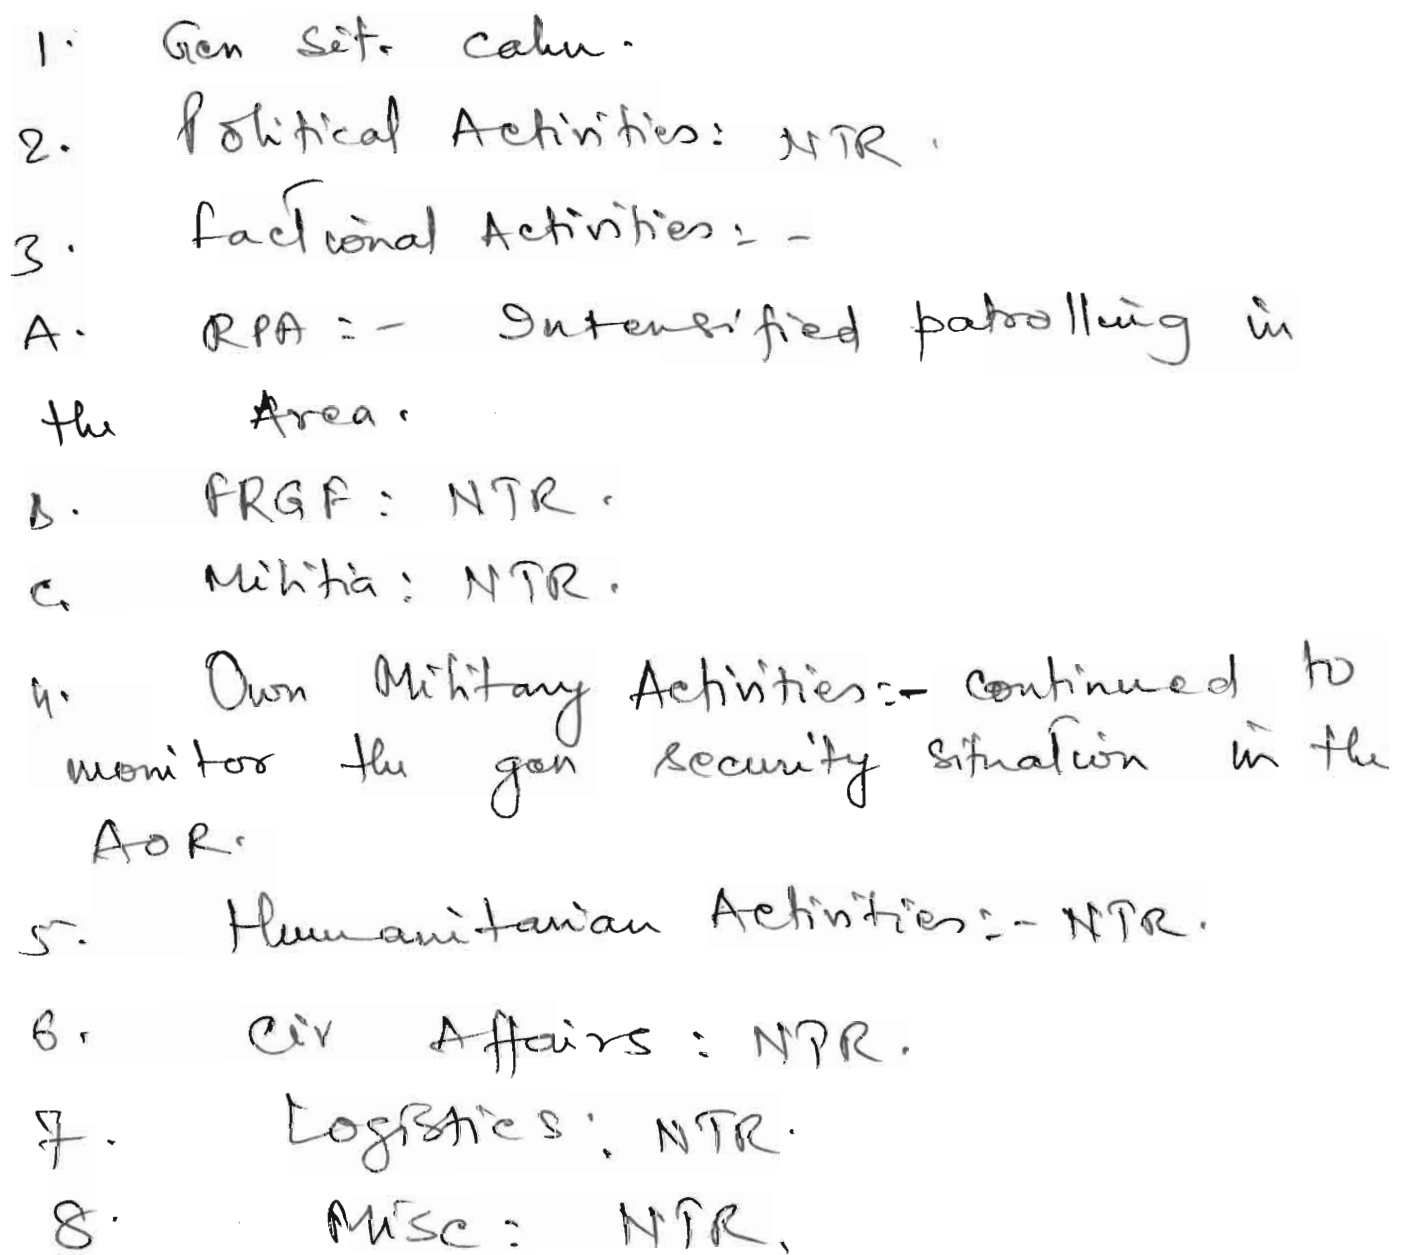 1. Gen sit. calm.
2. Political Activities: NTR.
3. factional Activities:-
A. RPA :- Intensified patrolling in
the Area.
B. FRGF: NTR.
C. Militia: NTR.
4. Own Military Activities:- continued to
monitor the gen security situation in the
AOR.
5. Humanitarian Activities:- NTR.
6. Civ Affairs: NTR.
7. Logistics: NTR.
8. Misc: NTR.